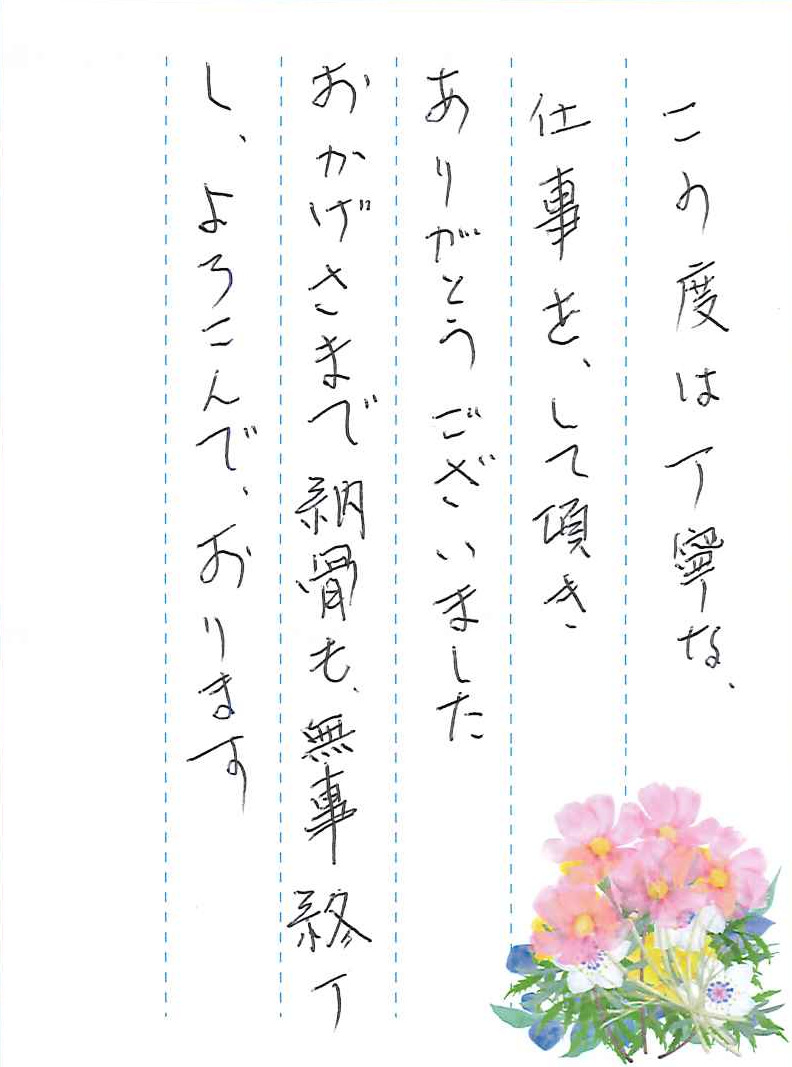 この度は丁寧な、
仕事を、して頂き
ありがとうございました
おかげさまで納骨も、無事終了
し、よろこんで、おります